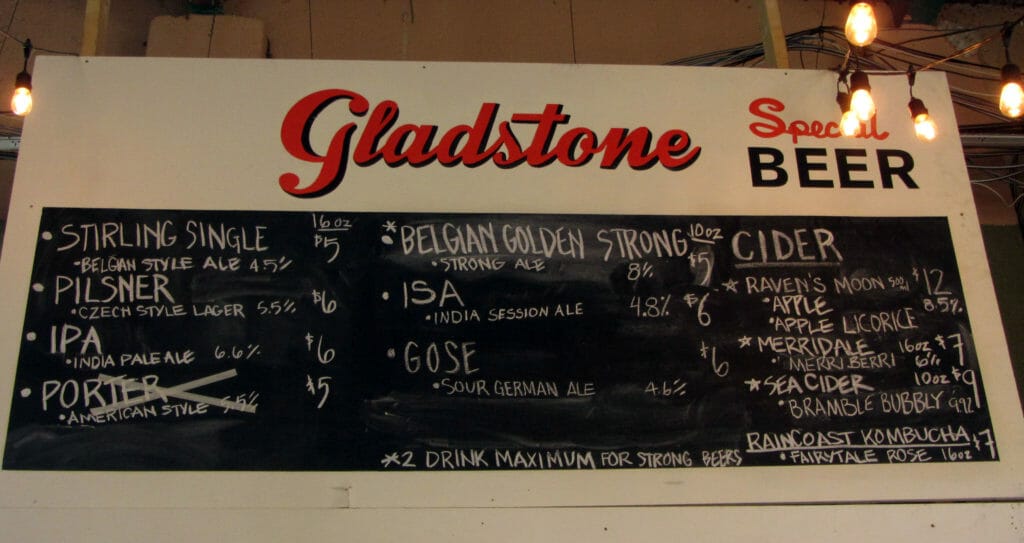 Gladstone
Special
BEER
16 oz
• STIRLING SINGLE $5
• BELGIAN STYLE ALE 4.5%
• PILSNER $6
• CZECH STYLE LAGER 5.5%
• IPA $6
• INDIA PALE ALE 6.6%
• PORTER $5
• AMERICAN STYLE 5.5%
10oz
* • BELGIAN GOLDEN STRONG $5
• STRONG ALE 8%
• ISA $6
• INDIA SESSION ALE 4.8%
• GOSE $6
• SOUR GERMAN ALE 4.6%
*2 DRINK MAXIMUM FOR STRONG BEERS
CIDER
☆ RAVEN'S MOON $12
• APPLE 8.5%
• APPLE LICORICE
★ MERRIDALE 16oz $7
• MERRI BERRI 6%
★ SEA CIDER 10oz $9
• BRAMBLE BUBBLY
RAINCOAST KOMBUCHA $7
• FAIRYTALE ROSE 16oz